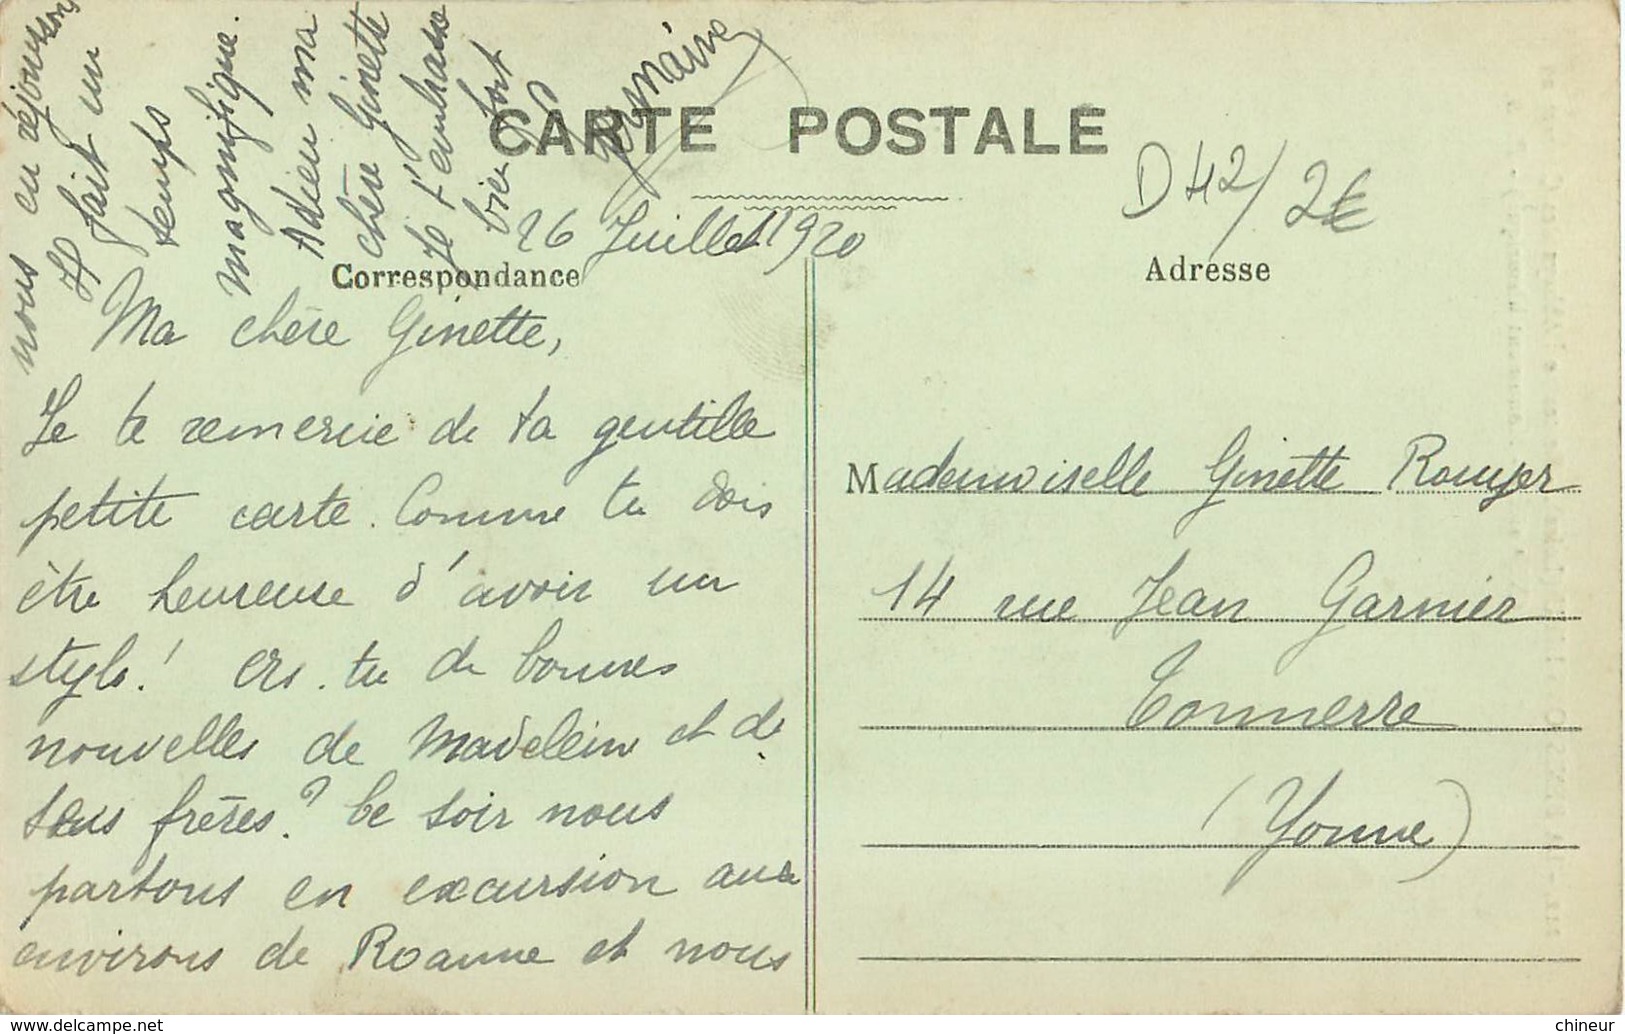 CARTE POSTALE
D 42/2€
Correspondance
Adresse
26 Juillet 1920
Ma chère Ginette,
Je te remercie de ta gentille
petite carte. Comme tu dois
être heureuse d'avoir un
stylo! As-tu de bonnes
nouvelles de Madeleine et de
ses frères? Ce soir nous
partons en excursion aux
environs de Roanne et nous
nous en réjouissons
Il fait un
temps
magnifique.
Adieu ma
chère Ginette
Je t'embrasse
bien fort
Mademoiselle Ginette Rouyer
14 rue Jean Garnier
Tonnerre
(Yonne)
www.delcampe.net
chineur